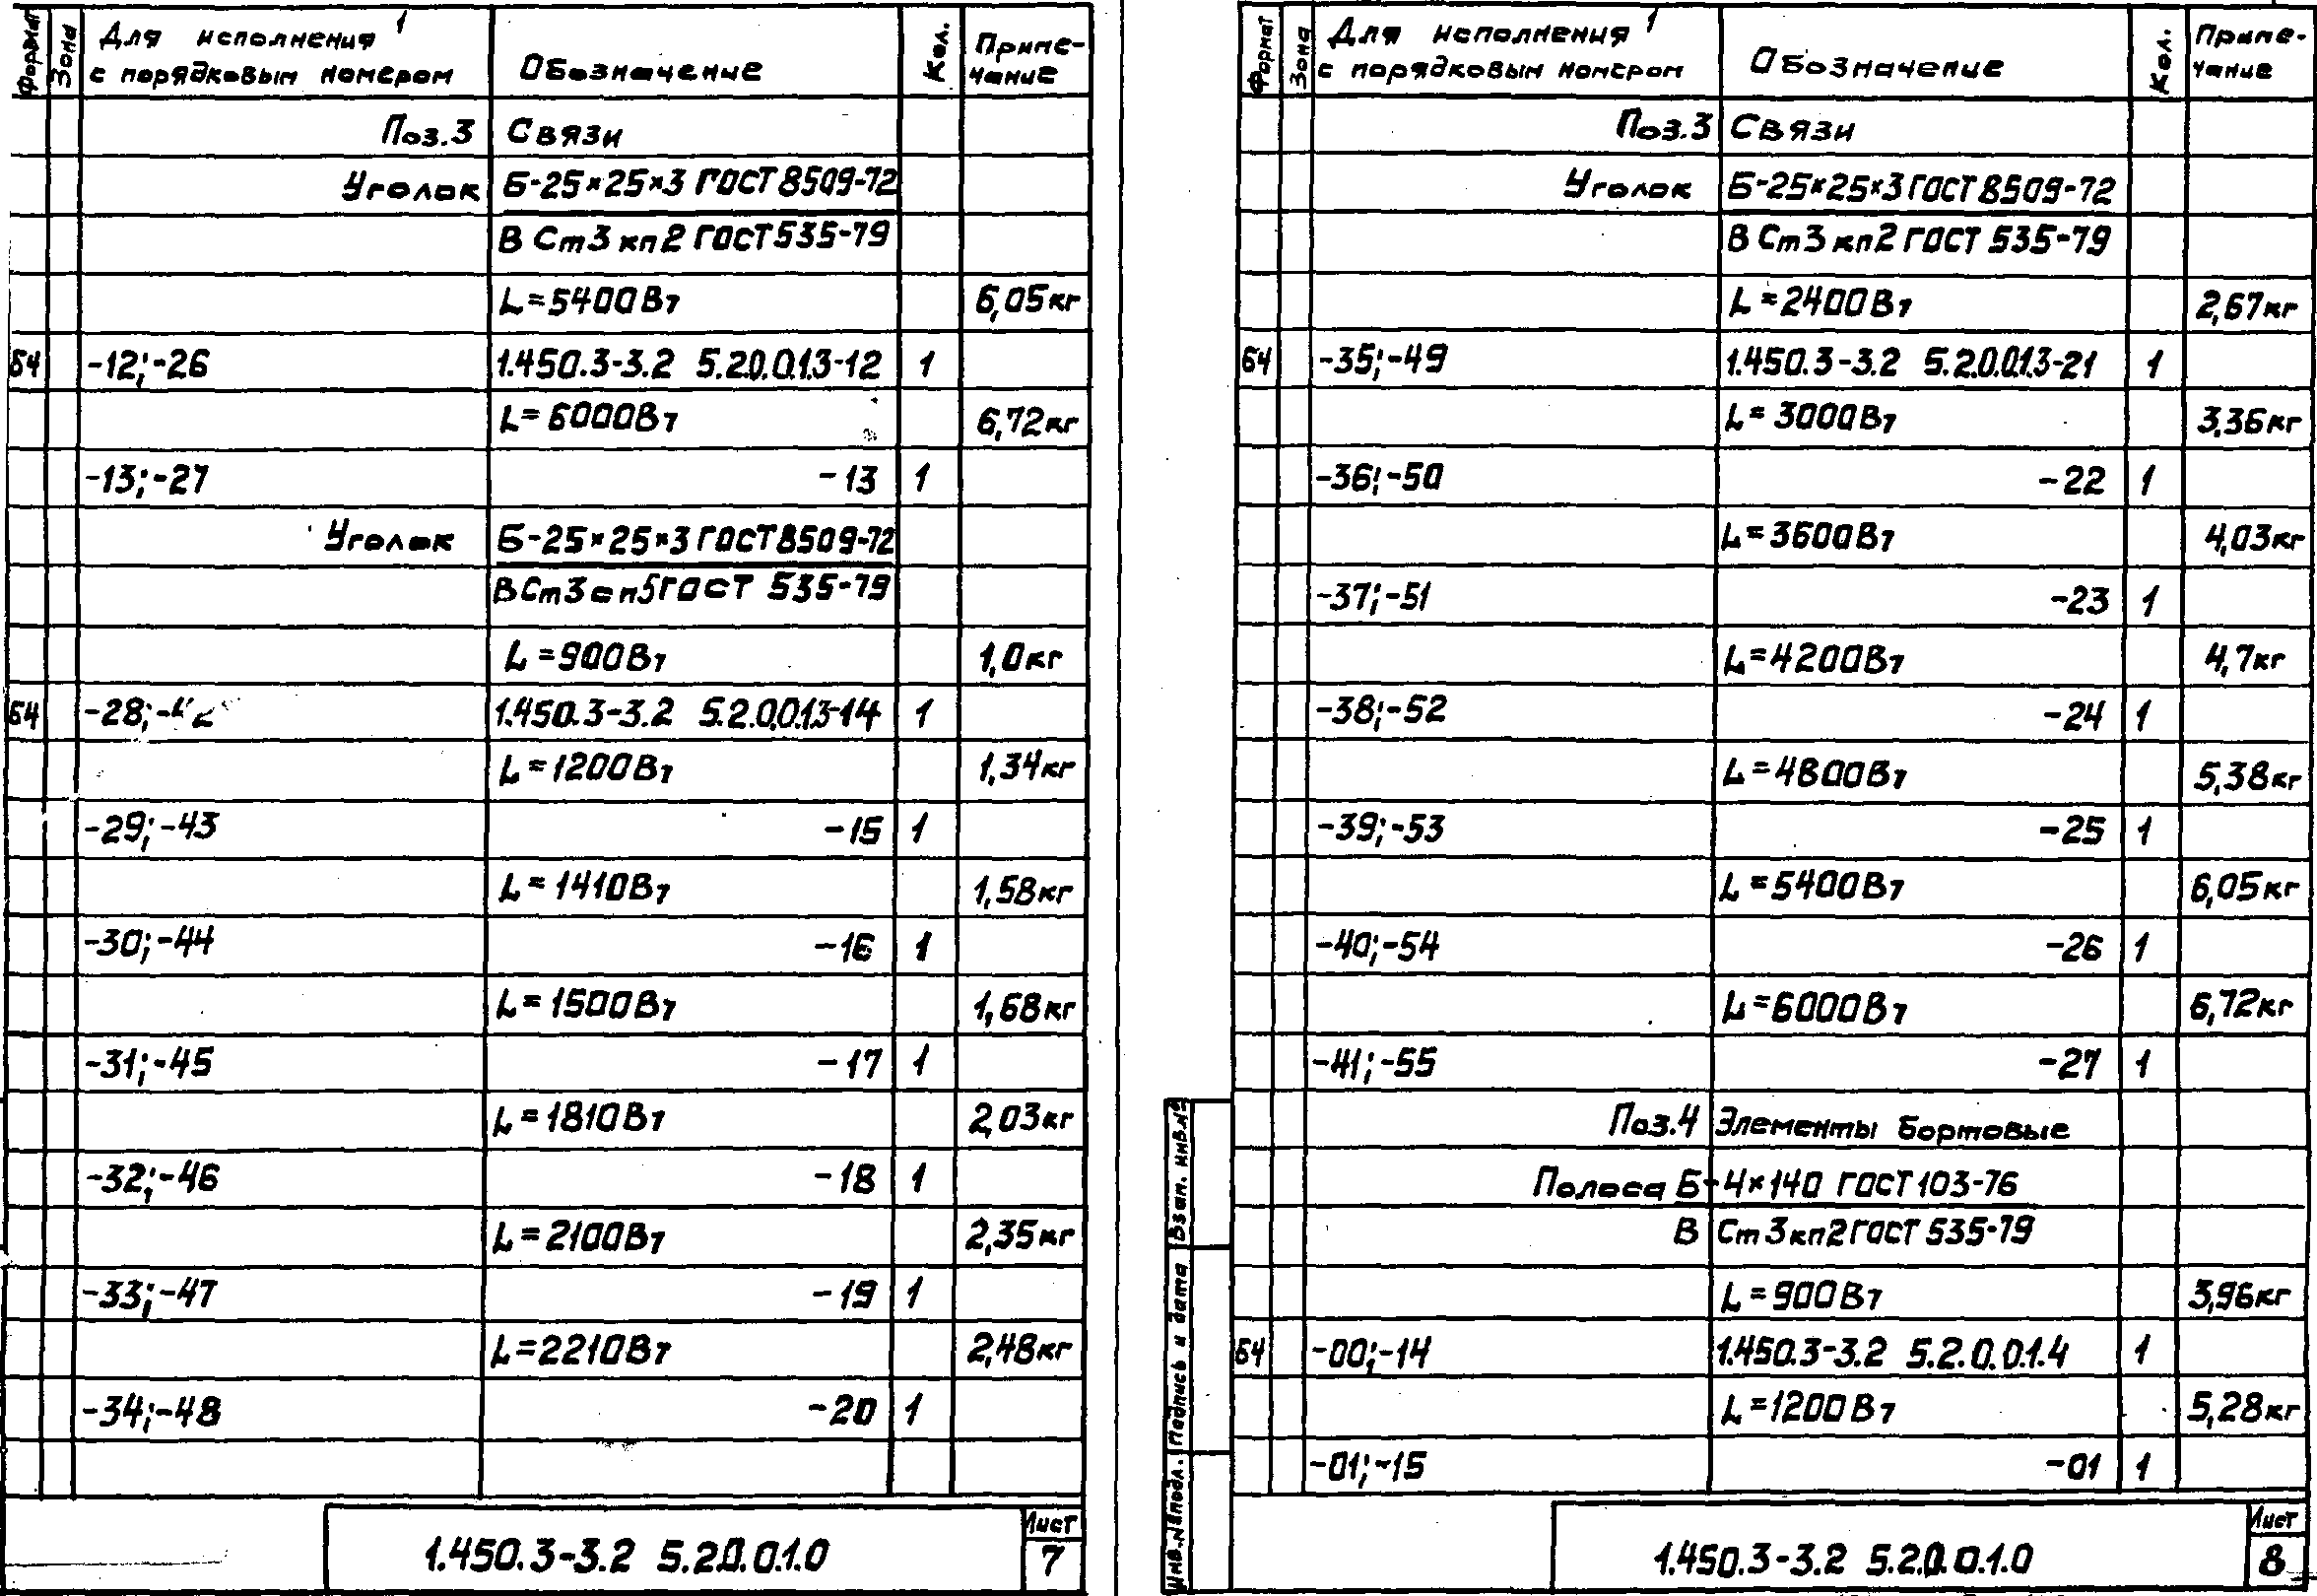 Формат Зона Для исполнения 1 с порядковым номером Обозначение Кол. Приме-чание
Поз.3 Связи
Уголок Б-25×25×3 ГОСТ 8509-72
В Ст3кп2 ГОСТ 535-79
L=5400Вт 6,05кг
Б4 -12;-26 1.450.3-3.2 5.2.0.0.1.3-12 1
L=6000Вт 6,72кг
-13;-27 -13 1
Уголок Б-25×25×3 ГОСТ 8509-72
В Ст3сп5 ГОСТ 535-79
L=900Вт 1,0кг
Б4 -28;-42 1.450.3-3.2 5.2.0.0.1.3-14 1
L=1200Вт 1,34кг
-29;-43 -15 1
L=1410Вт 1,58кг
-30;-44 -16 1
L=1500Вт 1,68кг
-31;-45 -17 1
L=1810Вт 2,03кг
-32;-46 -18 1
L=2100Вт 2,35кг
-33;-47 -19 1
L=2210Вт 2,48кг
-34;-48 -20 1
1.450.3-3.2 5.2.0.0.1.0 Лист 7
Формат Зона Для исполнения 1 с порядковым номером Обозначение Кол. Приме-чание
Поз.3 Связи
Уголок Б-25×25×3 ГОСТ 8509-72
В Ст3кп2 ГОСТ 535-79
L=2400Вт 2,67кг
Б4 -35;-49 1.450.3-3.2 5.2.0.0.1.3-21 1
L=3000Вт 3,36кг
-36;-50 -22 1
L=3600Вт 4,03кг
-37;-51 -23 1
L=4200Вт 4,7кг
-38;-52 -24 1
L=4800Вт 5,38кг
-39;-53 -25 1
L=5400Вт 6,05кг
-40;-54 -26 1
L=6000Вт 6,72кг
-41;-55 -27 1
Поз.4 Элементы бортовые
Полоса Б-4×140 ГОСТ 103-76
В Ст3кп2 ГОСТ 535-79
L=900Вт 3,96кг
Б4 -00;-14 1.450.3-3.2 5.2.0.0.1.4 1
L=1200Вт 5,28кг
-01;-15 -01 1
Инв.№подл. Подпись и дата Взам. инв.№
1.450.3-3.2 5.2.0.0.1.0 Лист 8